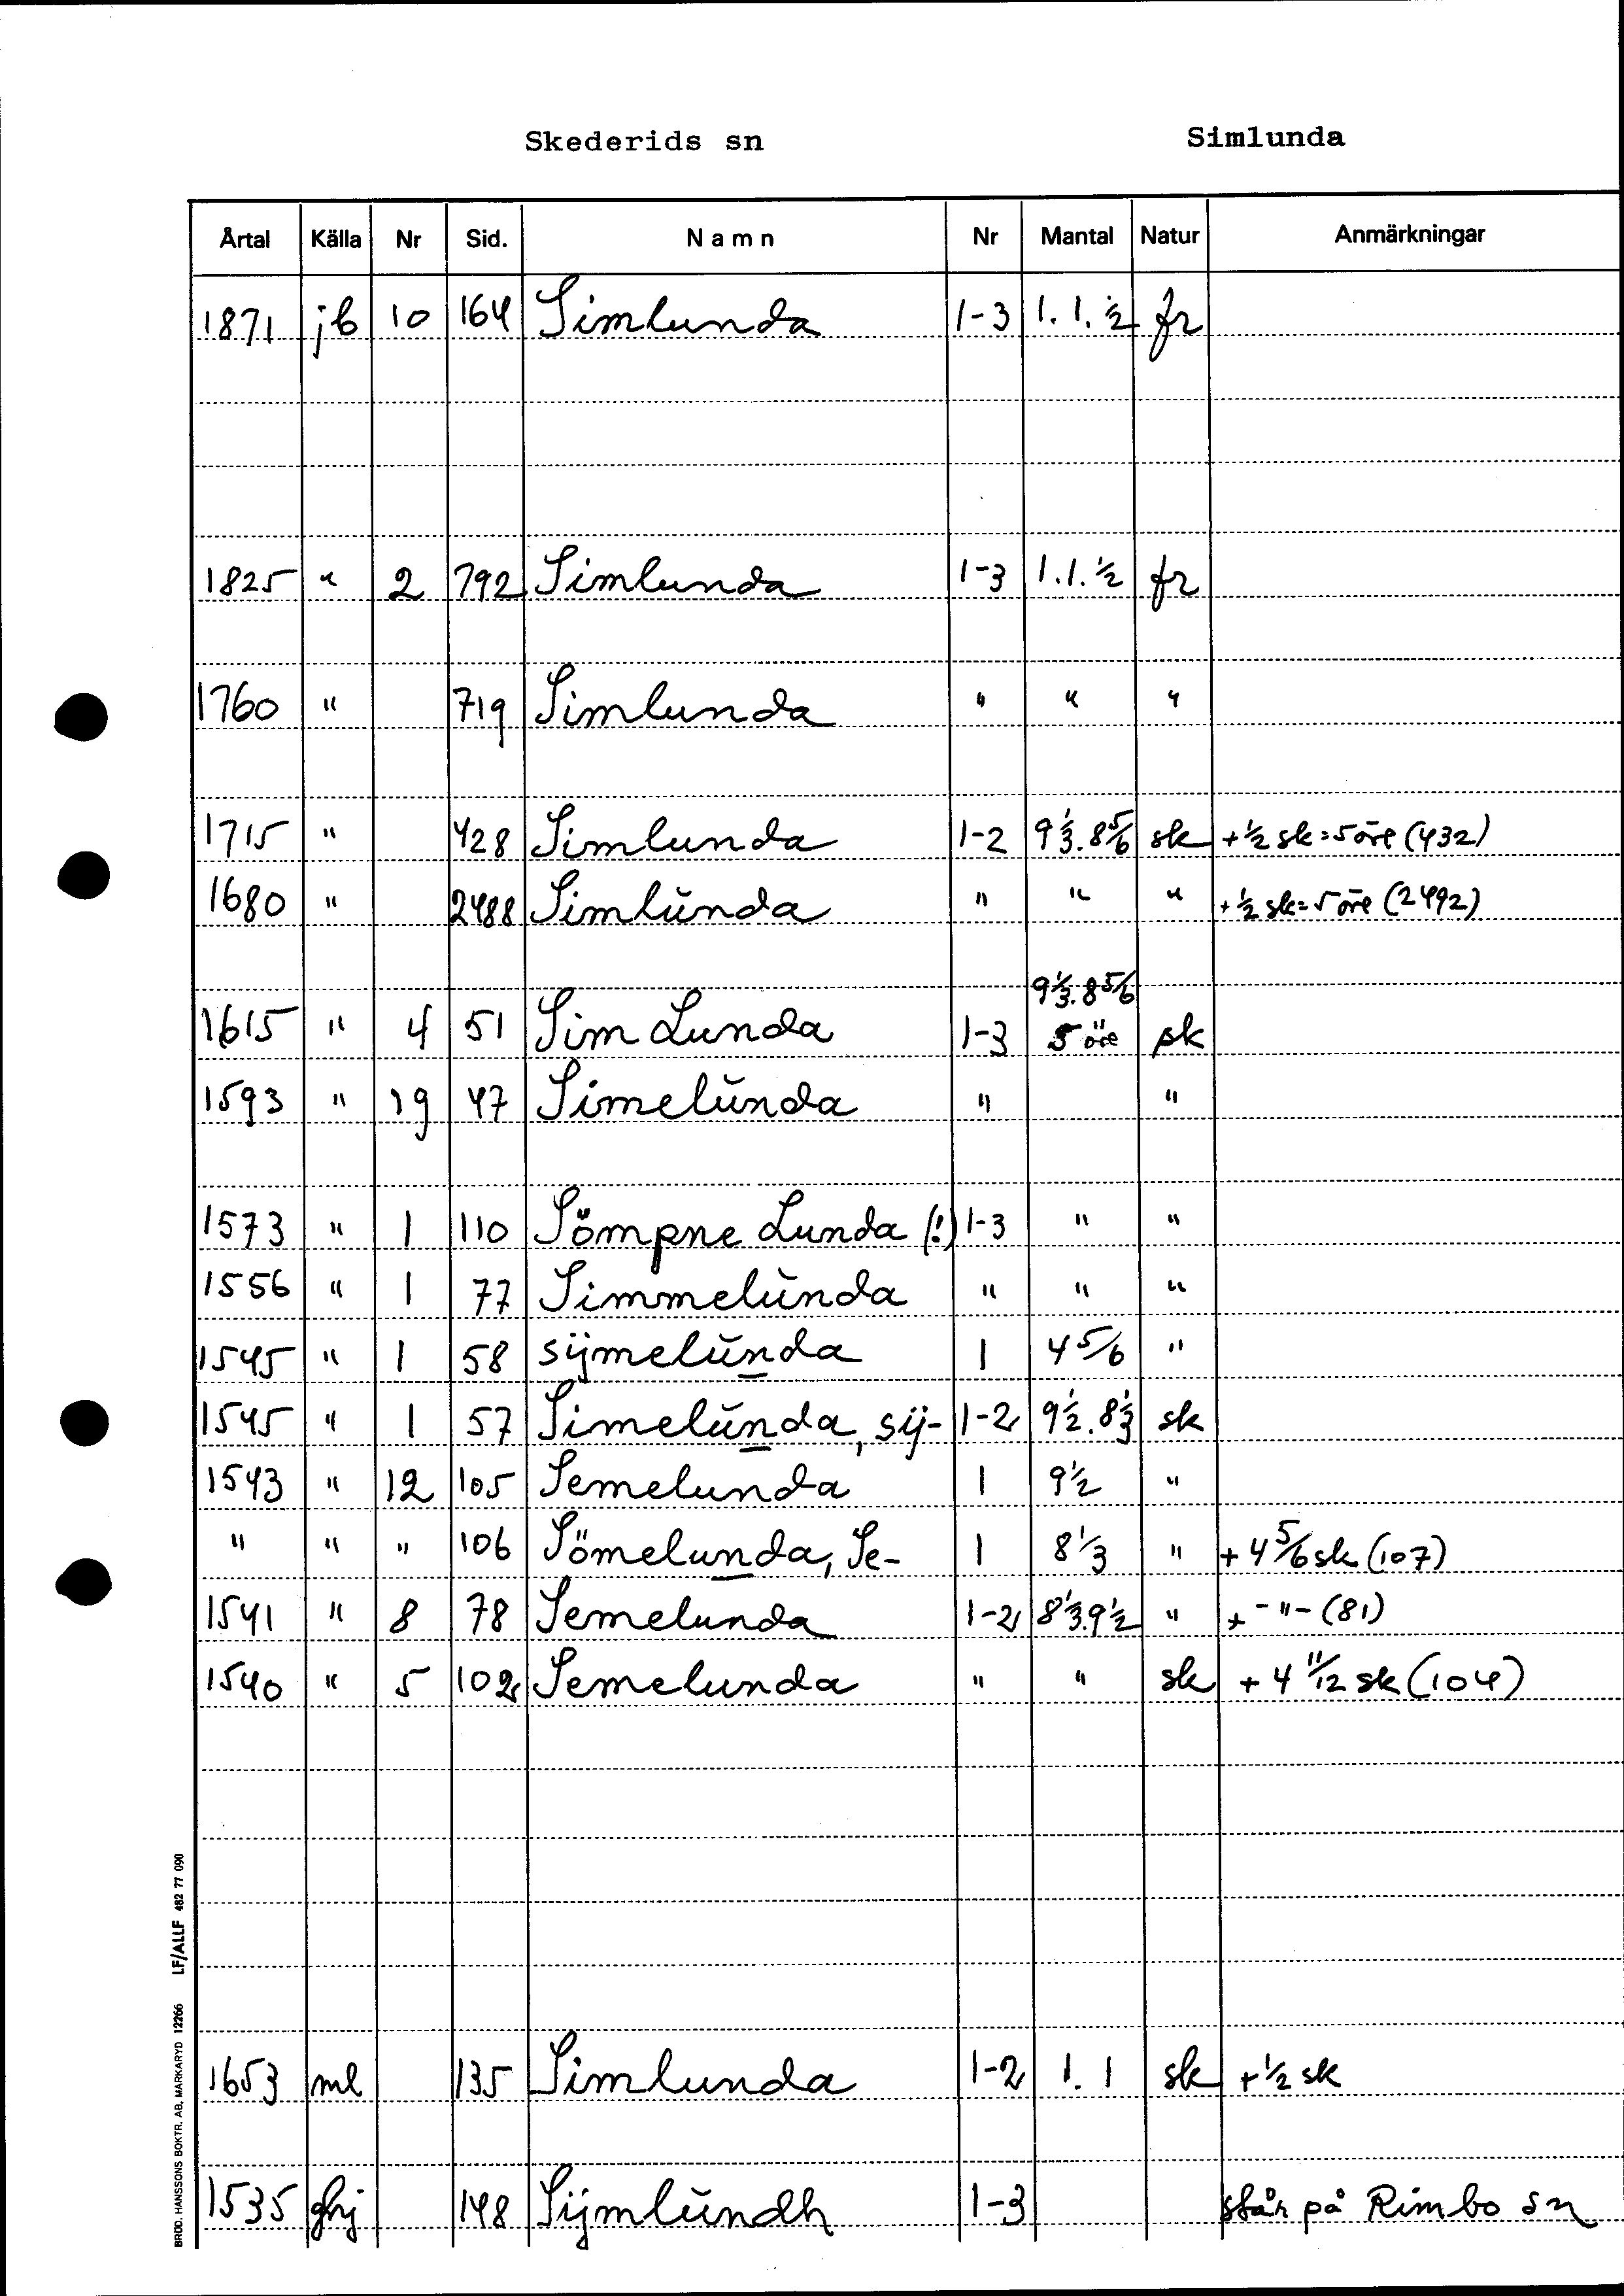 Skederids sn Simlunda
Årtal Källa Nr Sid. Namn Nr Mantal Natur Anmärkningar
1871 jb 10 164 Simlunda 1-3 1.1.½ fr
1825 " 2 792 Simlunda 1-3 1.1.½ fr
1760 " 719 Simlunda " " "
1715 " 428 Simlunda 1-2 9⅓.8⅚ sk +½ sk=5 öre (432)
1680 " 2488 Simlŭnda " " " +½ sk=5 öre (2492)
9⅓.8⅚
1615 " 4 51 Sim Lunda 1-3 5 öre sk
1593 " 19 47 Simelŭnda " "
1573 " 1 110 Sömpne Lunda (!) 1-3 " "
1556 " 1 77 Simmelŭnda " " "
1545 " 1 58 sijmelŭnda 1 4⅚ "
1545 " 1 57 Simelŭnda, sij- 1-2 9½.8⅓ sk
1543 " 12 105 Semelunda 1 9½ "
" " " 106 Sömelunda, Se- 1 8⅓ " +4⅚ sk (107)
1541 " 8 78 Semelunda 1-2 8⅓.9½ " + -"- (81)
1540 " 5 102 Semelunda " " sk +4 11/12 sk (104)
1653 ml 135 Simlunda 1-2 1.1 sk +½ sk
1535 ghj 148 Sijmlŭndh 1-3 står på Rimbo sn
BRÖD. HANSSONS BOKTR. AB, MARKARYD 12266 LF/ALLF 482 77 090